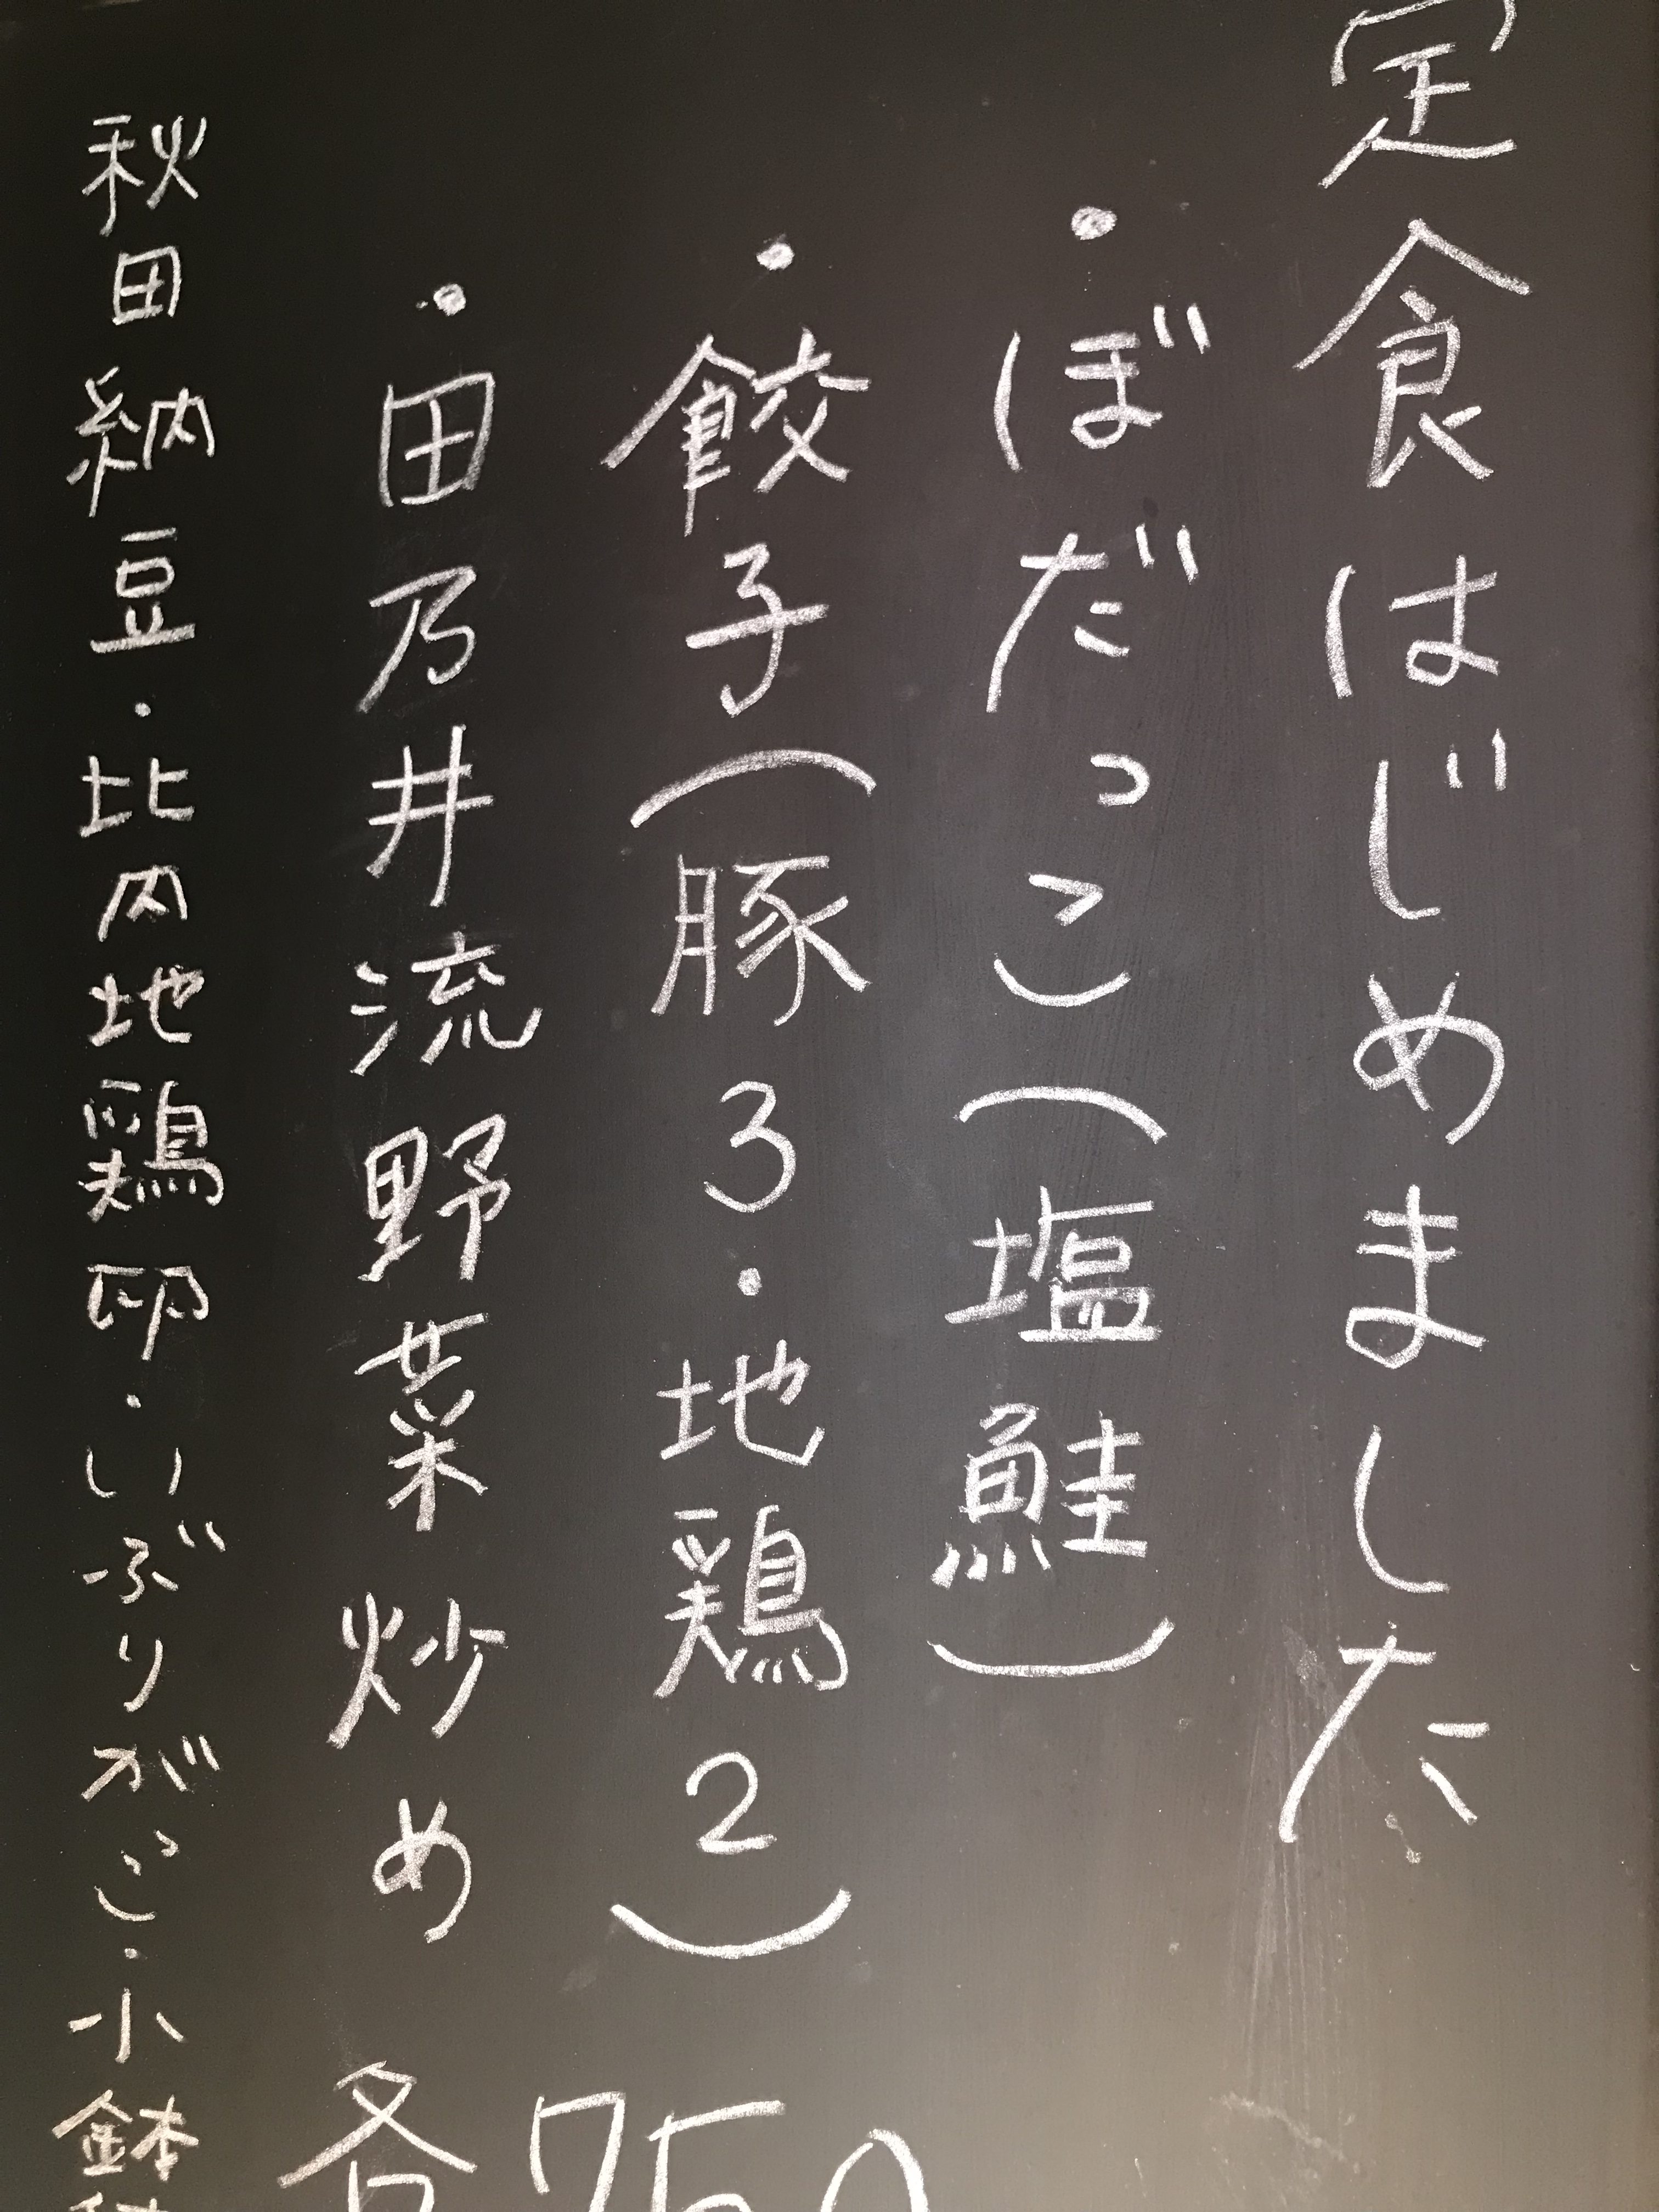 定食はじめました
・ぼだっこ(塩鮭)
・餃子(豚3・地鶏2)
・田乃井流野菜炒め
各750
秋田納豆・比内地鶏卵・いぶりがっこ・小鉢